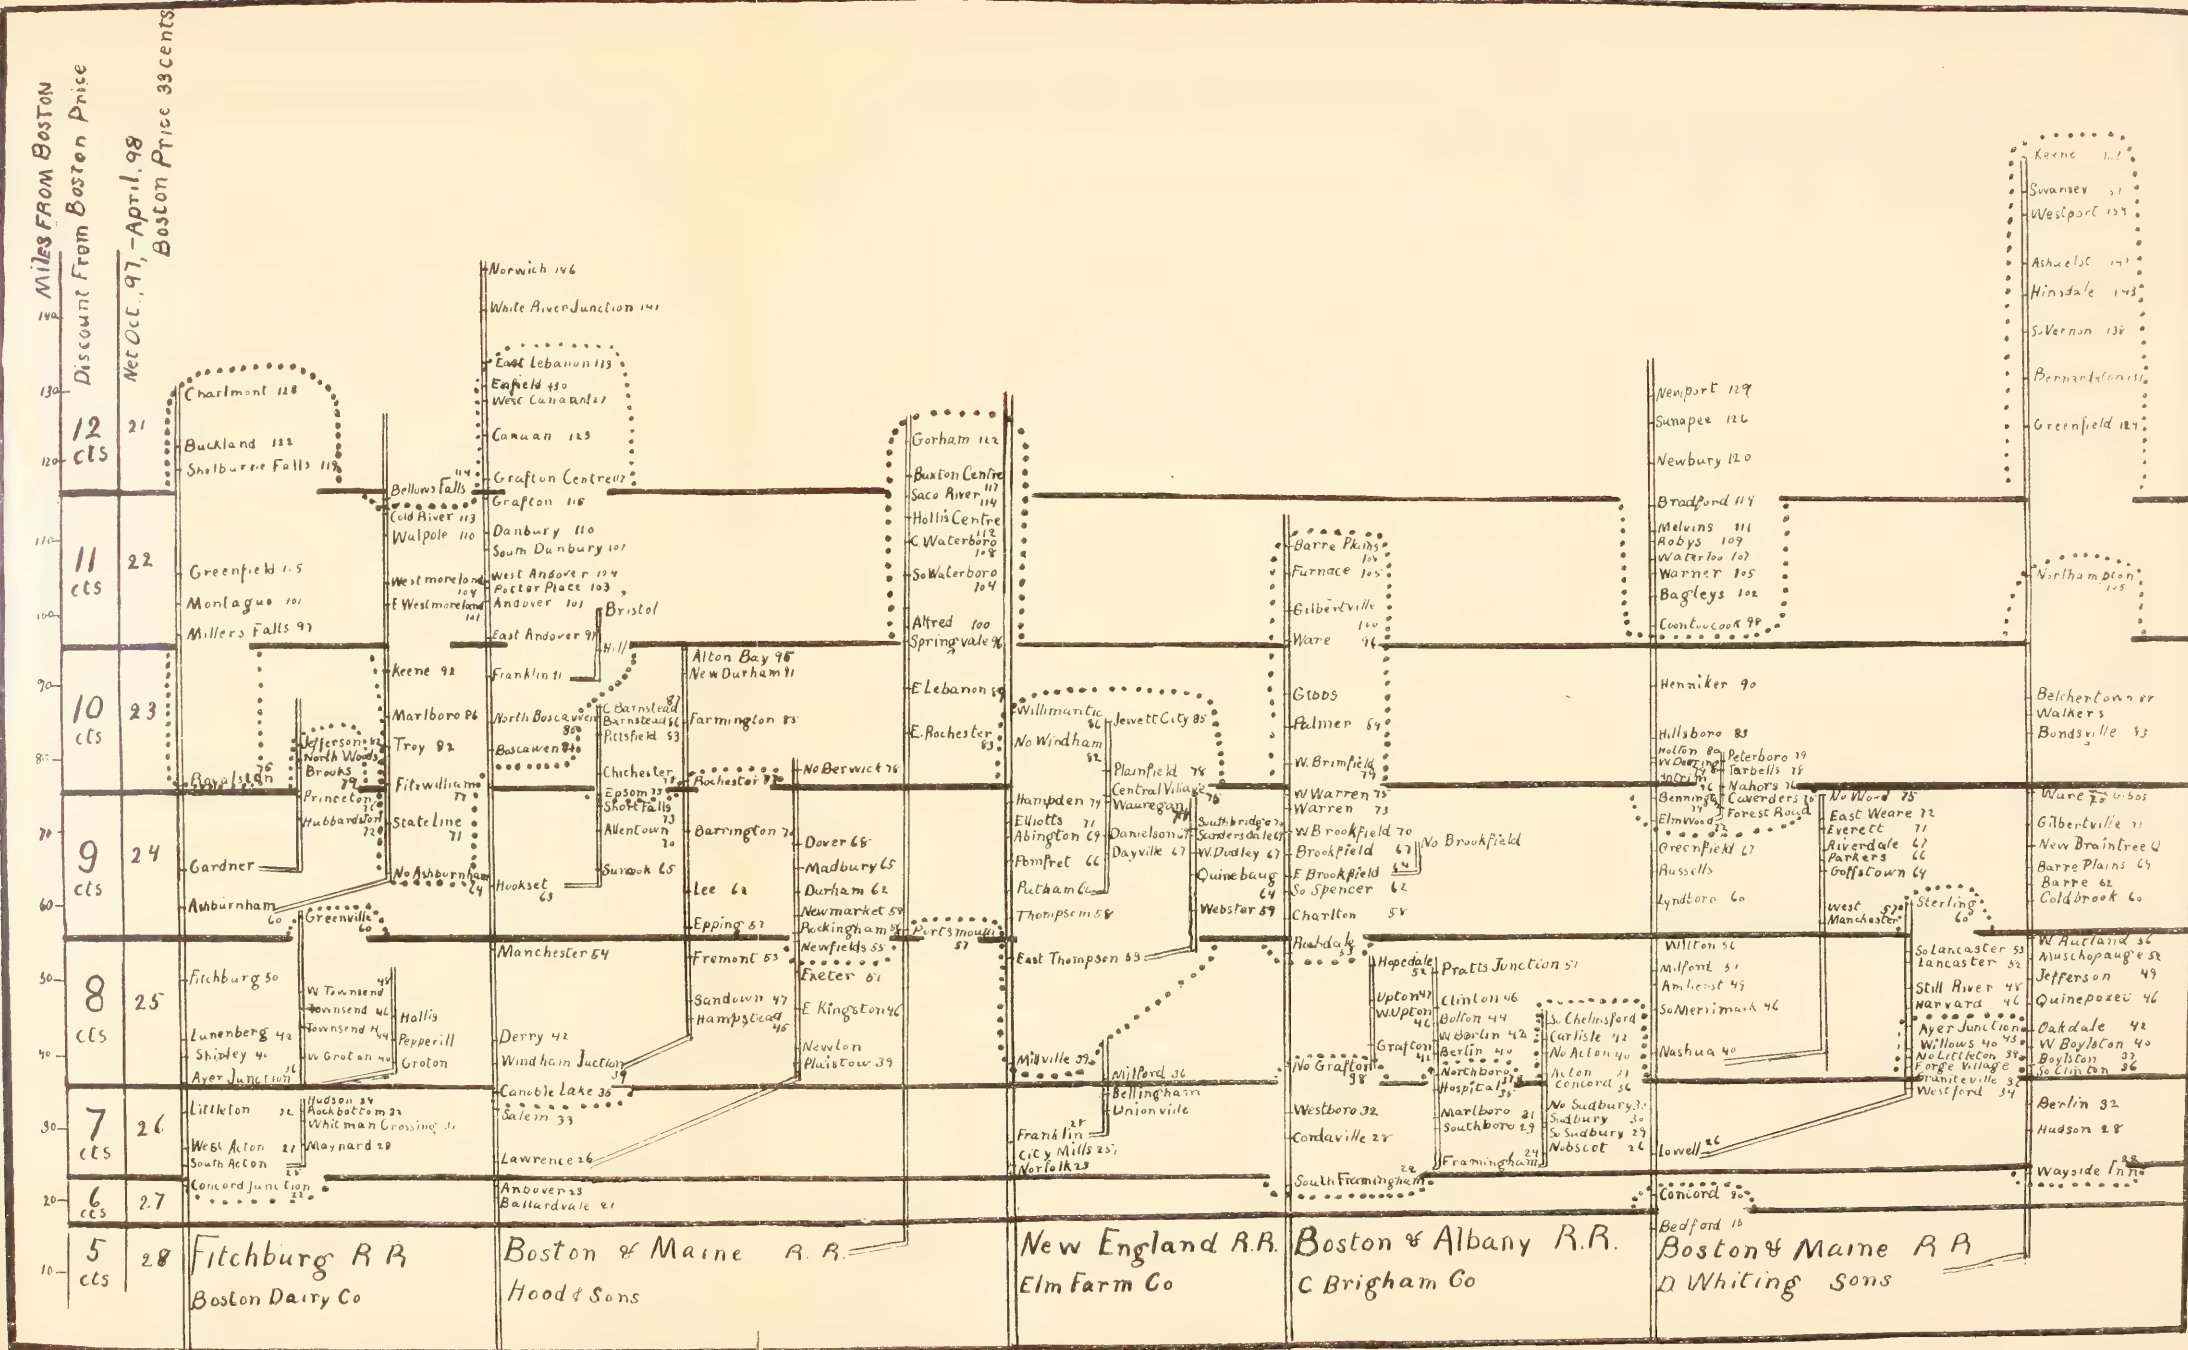 MILES FROM BOSTON
Discount From Boston Price
Net Oct., 97, - April, 98
Boston Price 33 cents
140
130
120
110
100
90
80
70
60
50
40
30
20
10
12 cts
21
11 cts
22
10 cts
23
9 cts
24
8 cts
25
7 cts
26
6 cts
27
5 cts
28
Charlmont 128
Buckland 122
Shelburne Falls 119
Greenfield
Montague 101
Millers Falls 97
Royalston 76
Gardner
Ashburnham 60
Fitchburg 50
Lunenberg 42
Shirley 40
Ayer Junction 36
Littleton 32
West Acton 27
South Acton 25
Concord Junction 22
Fitchburg R R
Boston Dairy Co
Jefferson 82
North Woods
Brooks 79
Princeton 76
Hubbardston 72
Greenville 60
W Townsend 48
Townsend 46
Townsend H 44
W Groton 40
Hollis
Pepperill
Groton
Hudson 34
Rockbottom 32
Whitman Crossing
Maynard 28
Bellows Falls 114
Cold River 113
Walpole 110
Westmoreland 104
E Westmoreland 101
Keene 92
Marlboro 86
Troy 82
Fitzwilliam 77
State Line 71
No Ashburnham 64
Norwich 146
White River Junction 141
East Lebanon 113
Enfield 130
West Canaan 127
Canaan 123
Grafton Centre 117
Grafton 115
Danbury 110
South Danbury 107
West Andover 104
Potter Place 103
Andover 101
East Andover 97
Franklin 91
North Boscawen 86
Boscawen
Hookset 63
Manchester 54
Derry 42
Windham Juction 39
Canobie Lake 35
Salem 33
Lawrence 26
Andover 23
Ballardvale 21
Boston & Maine R. R.
Hood & Sons
Bristol
Hill
C Barnstead 87
Barnstead 86
Pittsfield 83
Chichester 78
Epsom 75
Short Falls 73
Allentown 70
Suncook 65
Alton Bay 95
New Durham 91
Farmington 85
Rochester 77
Barrington 70
Lee 62
Epping 57
Fremont 53
Sandown 47
Hampstead 45
No Berwick 78
Dover 68
Madbury 65
Durham 62
Newmarket 59
Rockingham 56
Newfields 55
Exeter 51
E Kingston 46
Newton
Plaistow 39
Gorham 122
Buxton Centre 117
Saco River 114
Hollis Centre 112
C. Waterboro 108
So Waterboro 104
Alfred 100
Springvale 96
E Lebanon 89
E. Rochester 83
Portsmouth 57
Willimantic 86
No Windham 82
Hampden 74
Elliotts 71
Abington 69
Pomfret 66
Putnam 62
Thompson 58
East Thompson 53
Millville 39
Franklin 27
City Mills 25
Norfolk 23
New England R.R.
Elm Farm Co
Jewett City 85
Plainfield 78
Central Village 76
Wauregan
Danielson
Dayville 67
Southbridge 70
Sandersdale 69
W. Dudley 67
Quinebaug 64
Webster 59
Milford 36
Bellingham
Unionville
Barre Plains 108
Furnace 105
Gilbertville 100
Ware 96
Gibbs
Palmer 84
W. Brimfield 79
W Warren 75
Warren 73
W Brookfield 70
Brookfield 67
E Brookfield 64
So Spencer 62
Charlton 58
Rochdale 53
No Grafton 38
Westboro 32
Cordaville 28
South Framingham 22
Boston & Albany R.R.
C Brigham Co
No Brookfield
Hopedale 52
Upton 47
W. Upton 46
Grafton 41
Pratts Junction 51
Clinton 46
Bolton 44
W Berlin 42
Berlin 40
Northboro 37
Hospital 35
Marlboro 31
Southboro 29
Framingham 24
So Chelmsford
Carlisle 42
No Acton 40
Acton 37
Concord 36
No Sudbury
Sudbury 30
So Sudbury 29
Nobscot 26
Newport 129
Sunapee 126
Newbury 120
Bradford 119
Melvins 111
Robys 109
Waterloo 107
Warner 105
Bagleys 102
Contoocook 98
Henniker 90
Hillsboro 83
W Deering
Antrim 76
Bennington 74
Elmwood 72
Greenfield 67
Russells
Lyndboro 60
Wilton 56
Milford 51
Amherst 49
So Merrimack 46
Nashua 40
Lowell 26
Concord 20
Bedford 18
Boston & Maine R R
D Whiting Sons
Peterboro 79
Tarbells 78
Nahors 76
Caverders
Forest Road
No Weare 75
East Weare 72
Everett 71
Riverdale 67
Parkers 66
Goffstown 64
West Manchester 57
Sterling 60
So Lancaster 53
Lancaster 52
Still River 48
Harvard 46
Ayer Junction 43
Willows 40
No Littleton 38
Forge Village
Graniteville 36
Westford 34
Keene
Swansey
Westport 154
Ashuelot 147
Hinsdale 143
So Vernon 138
Bernardston 131
Greenfield 124
Northampton 105
Belchertown 88
Walkers
Bondsville 83
Ware 75 Gibbs
Gilbertville 71
New Braintree
Barre Plains 64
Barre 62
Coldbrook 60
W Rutland 56
Muschopauge 52
Jefferson 49
Quinepoxet 46
Oakdale 42
W Boylston 40
Boylston 37
So Clinton 36
Berlin 32
Hudson 28
Wayside Inn 22